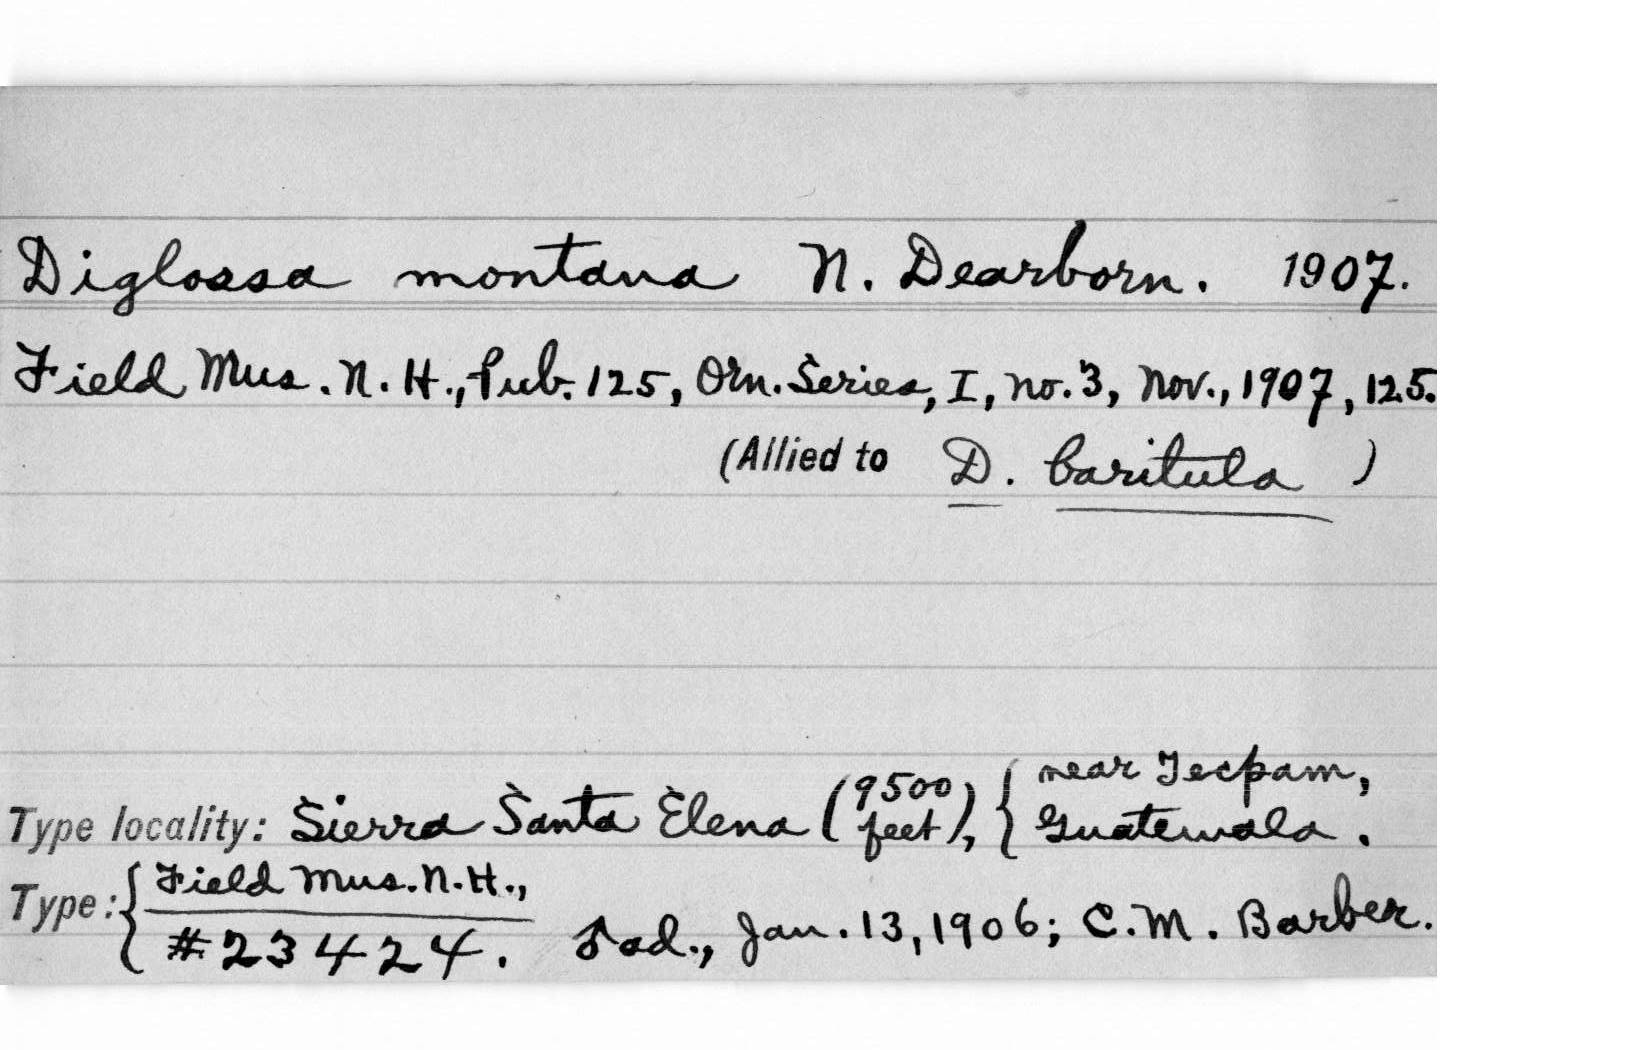 Diglossa montana N. Dearborn. 1907.
Field Mus. N. H., Pub. 125, Orn. Series, I, no. 3, Nov., 1907, 125.
(Allied to D. baritula )
Type locality: Sierra Santa Elena (9500 feet), { near Tecpam, Guatemala.
Type: { Field Mus. N. H., #23424. ♂ ad., Jan. 13, 1906; C. M. Barber.